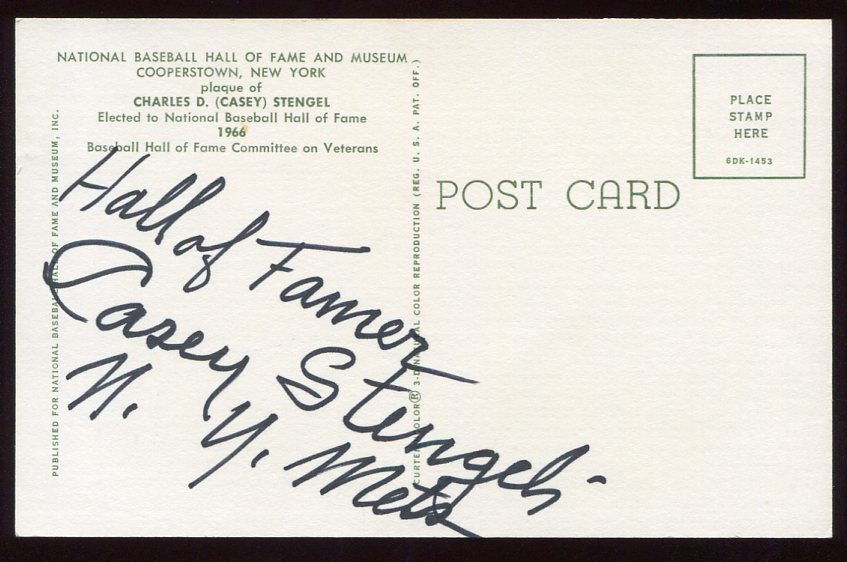 NATIONAL BASEBALL HALL OF FAME AND MUSEUM
COOPERSTOWN, NEW YORK
plaque of
CHARLES D. (CASEY) STENGEL
Elected to National Baseball Hall of Fame
1966
Baseball Hall of Fame Committee on Veterans
PUBLISHED FOR NATIONAL BASEBALL HALL OF FAME AND MUSEUM, INC.
Hall of Famer
Casey Stengel
N. Y. Mets
CURTEICHCOLOR® 3-D NATURAL COLOR REPRODUCTION (REG. U. S. A. PAT. OFF.)
POST CARD
PLACE
STAMP
HERE
6DK-1453